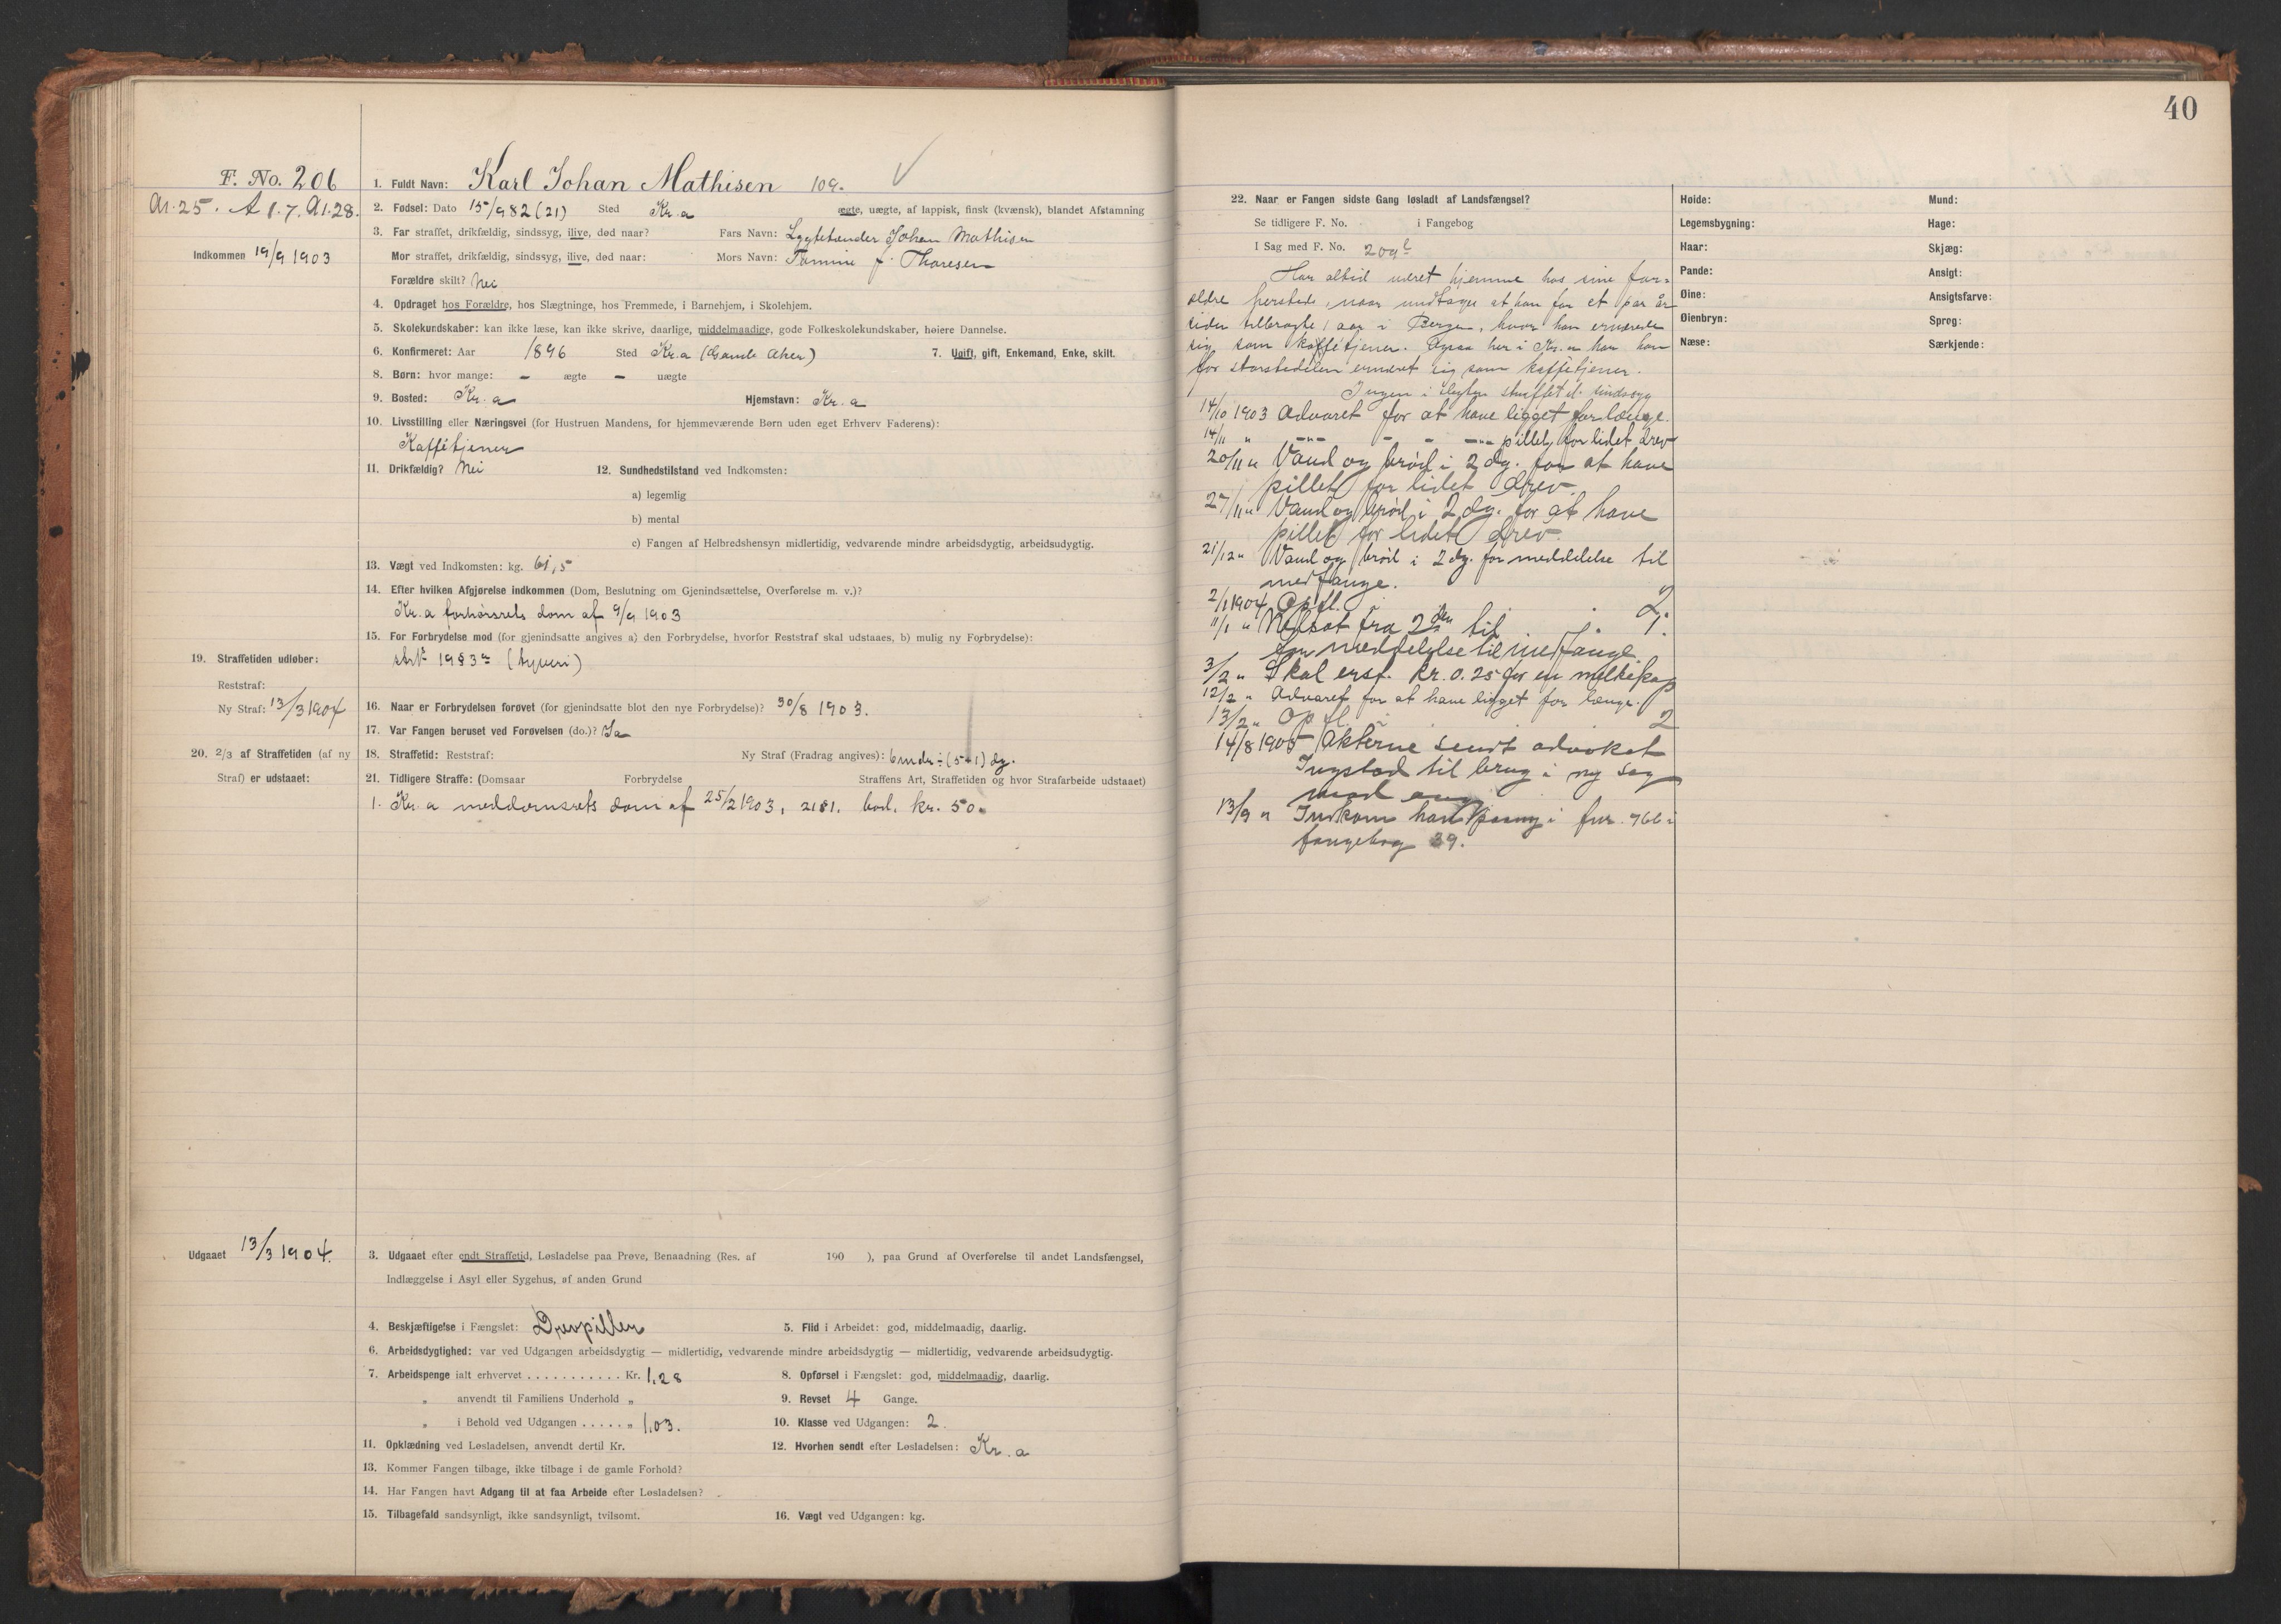 40
F. No. 206
1. Fuldt Navn: Karl Johan Mathisen 109.
A1.25. A 1.7. A1.28.
2. Fødsel: Dato 15/9 82 (21) Sted Kr.a ægte, uægte, af lappisk, finsk (kvænsk), blandet Afstamning
3. Far straffet, drikfældig, sindssyg, ilive, død naar? Fars Navn: Lygtetænder Johan Mathisen
Indkommen 19/9 1903
Mor straffet, drikfældig, sindssyg, ilive, død naar: Mors Navn: Tomine f. Thoresen
Forældre skilt? Nei
4. Opdraget hos Forældre, hos Slægtninge, hos Fremmede, i Barnehjem, i Skolehjem.
5. Skolekundskaber: kan ikke læse, kan ikke skrive, daarlige, middelmaadige, gode Folkeskolekundskaber, høiere Dannelse.
6. Konfirmeret: Aar 1896 Sted Kr.a (Gamle Aker) 7. Ugift, gift, Enkemand, Enke, skilt.
8. Børn: hvor mange: – ægte – uægte
9. Bosted: Kr.a Hjemstavn: Kr.a
10. Livsstilling eller Næringsvei (for Hustruen Mandens, for hjemmeværende Børn uden eget Erhverv Faderens):
Kaffétjener
11. Drikfældig? Nei 12. Sundhedstilstand ved Indkomsten:
a) legemlig
b) mental
c) Fangen af Helbredshensyn midlertidig, vedvarende mindre arbeidsdygtig, arbeidsudygtig.
13. Vægt ved Indkomsten: kg. 61,5
14. Efter hvilken Afgjørelse indkommen (Dom, Beslutning om Gjenindsættelse, Overførelse m. v.)?
Kr.a forhørsrets dom af 9/9 1903
15. For Forbrydelse mod (for gjenindsatte angives a) den Forbrydelse, hvorfor Reststraf skal udstaaes, b) mulig ny Forbrydelse):
(tyveri)
19. Straffetiden udløber:
Reststraf:
Ny Straf: 13/3 1904
16. Naar er Forbrydelsen forøvet (for gjenindsatte blot den nye Forbrydelse)? 30/8 1903.
17. Var Fangen beruset ved Forøvelsen (do.)? Ja
20. 2/3 af Straffetiden (af ny
Straf) er udstaaet:
18. Straffetid: Reststraf: Ny Straf (Fradrag angives): 6 mdr ÷ (5+1) dg.
21. Tidligere Straffe: (Domsaar Forbrydelse Straffens Art, Straffetiden og hvor Strafarbeide udstaaet)
1. Kr.a meddomsrets dom af 25/2 1903, bod, kr. 50.
Udgaaet 13/3 1904.
3. Udgaaet efter endt Straffetid, Løsladelse paa Prøve, Benaadning (Res. af 190 ), paa Grund af Overførelse til andet Landsfængsel,
Indlæggelse i Asyl eller Sygehus, af anden Grund
4. Beskjæftigelse i Fængslet: Drevpiller 5. Flid i Arbeidet: god, middelmaadig, daarlig.
6. Arbeidsdygtighed: var ved Udgangen arbeidsdygtig — midlertidig, vedvarende mindre arbeidsdygtig — midlertidig, vedvarende arbeidsudygtig.
7. Arbeidspenge ialt erhvervet ........... Kr. 1,28 8. Opførsel i Fængslet: god, middelmaadig, daarlig.
„ anvendt til Familiens Underhold „ 9. Revset 4 Gange.
„ i Behold ved Udgangen ..... „ 1,03. 10. Klasse ved Udgangen: 2.
11. Opklædning ved Løsladelsen, anvendt dertil Kr. 12. Hvorhen sendt efter Løsladelsen: Kr.a
13. Kommer Fangen tilbage, ikke tilbage i de gamle Forhold?
14. Har Fangen havt Adgang til at faa Arbeide efter Løsladelsen?
15. Tilbagefald sandsynligt, ikke sandsynligt, tvilsomt. 16. Vægt ved Udgangen: kg.
22. Naar er Fangen sidste Gang løsladt af Landsfængsel?
Se tidligere F. No. i Fangebog
I Sag med F. No. 209
Har altid været hjemme hos sine for=
ældre herstede, naar undtages at han for et par år
siden tilbragte 1 aar i Bergen, hvor han ernærede
sig som kaffétjener. Ogsaa her i Kr.a har han
for størstedelen ernæret sig som kaffétjener.
Ingen i slegten straffet el. sindssyg
14/10 1903 Advaret for at have ligget for længe.
14/11 " –"– – – –"– pillet for lidet drev
20/11 " Vand og brød i 2 dg. for at have
pillet for lidet drev.
27/11 " Vand og brød i 2 dg. for at have
pillet for lidet drev.
21/12 " Vand og brød i 2 dg. for meddelelse til
medfange.
2/1 1904 Opfl. i 2.
11/1 " Nedsat fra 2den til 1.
for meddelelse til medfange
3/2 " Skal erst. kr. 0.25 for en melkekop
12/2 " Advaret for at have ligget for længe.
13/2 " Opfl. i 2
14/8 1905 Akterne sendt advokat
Ingstad til brug i ny sag
mod
13/9 " Indkom han paany i fnr. 766 i
fangebog 39.
Høide:
Legemsbygning:
Haar:
Pande:
Øine:
Øienbryn:
Næse:
Mund:
Hage:
Skjæg:
Ansigt:
Ansigtsfarve:
Sprog:
Særkjende: